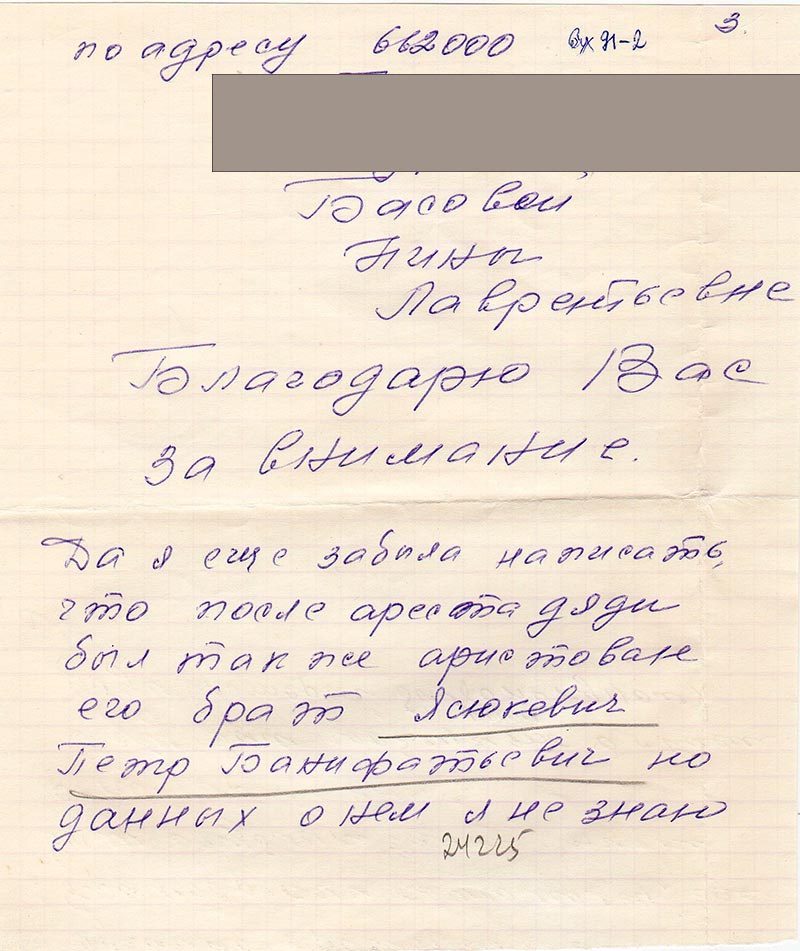 3.
по адресу 662000 Вх 91-2
Басовой
Нины
Лаврентьевне
Благодарю Вас
за внимание.
Да я еще забыла написать,
что после ареста дяди
был так же аристован
его брат Ясюкевич
Петр Банифатьевич но
данных о нем я не знаю
24225